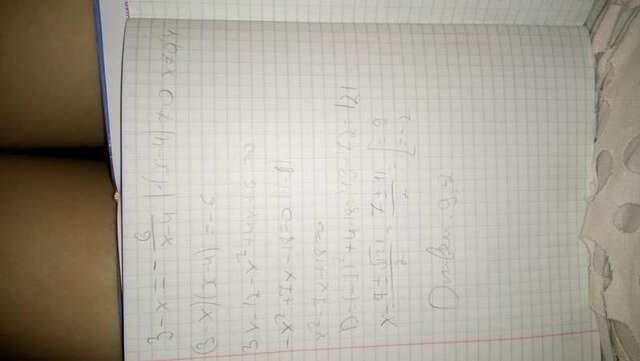 3-x=-\frac{6}{x-4} | ·(x-4) ≠ 0 x≠4
(3-x)(x-4)=-6
3x-12-x²+4x+6=0
-x²+7x-18=0 |·(-1)
x²-7x+18=0
D=(-7)²+4·18=49+72=121
x=\frac{7±√121}{2}=\frac{7±11}{2}=[=9 =-2
Ответ: 9,-2